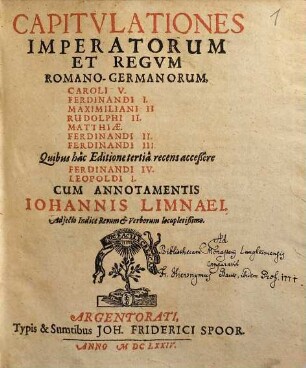 1
CAPITVLATIONES
IMPERATORUM
ET REGVM
ROMANO-GERMANORUM,
CAROLI V.
FERDINANDI I.
MAXIMILIANI II
RUDOLPHI II.
MATTHIÆ.
FERDINANDI II.
FERDINANDI III.
Quibus hâc Editione tertiâ recens accessêre
FERDINANDI IV.
LEOPOLDI I.
CUM ANNOTAMENTIS
IOHANNIS LIMNAEI,
Adjecto Indice Rerum & Verborum locupletissimo.
Ad
Bibliothecam
comparavit
Fr. Hieronymus
ARGENTORATI,
Typis & Sumtibus JOH. FRIDERICI SPOOR.
ANNO M DC LXXIV.